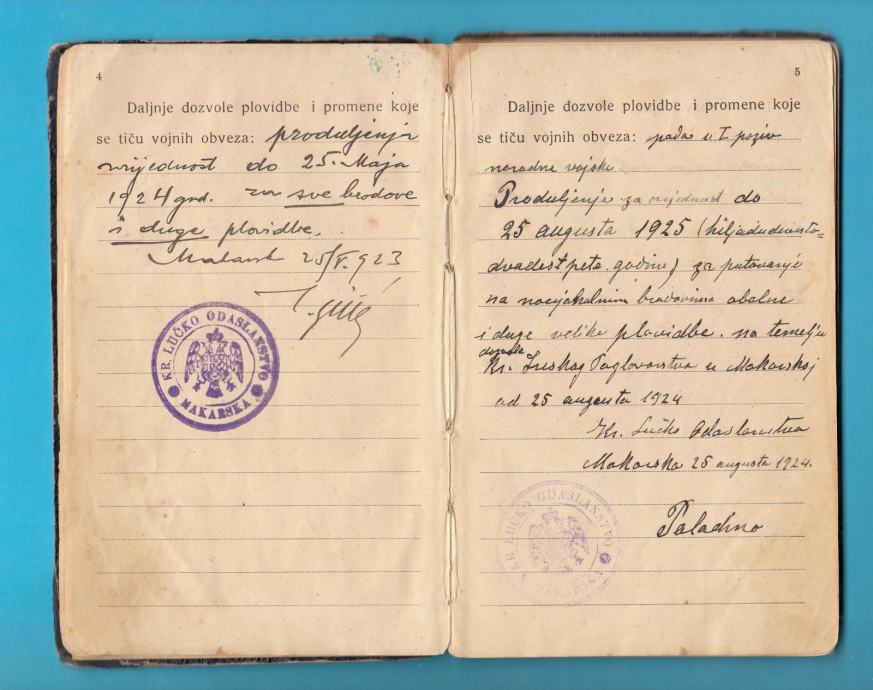 4
Daljnje dozvole plovidbe i promene koje
se tiču vojnih obveza: produljenja
vrijednost do 25. Maja
1924 god. za sve brodove
i duge plovidbe.
25/V. 923
KR. LUČKO ODASLANSTVO
MAKARSKA
5
Daljnje dozvole plovidbe i promene koje
se tiču vojnih obveza: pada u I poziv
narodne vojske.
Produljenje za vrijednost do
25 augusta 1925 (hiljadudevesto=
dvadestpete godine) za putovanje
na nacijonalnim brodovima obalne
i duge velike plovidbe. na temelju
dozvole
Kr. Luskog Poglavarstva u Makarskoj
od 25 augusta 1924
Kr. Lučko Odaslanstvo
Makarska 25 augusta 1924.
Paladino
KR. LUČKO ODASLANSTVO
MAKARSKA